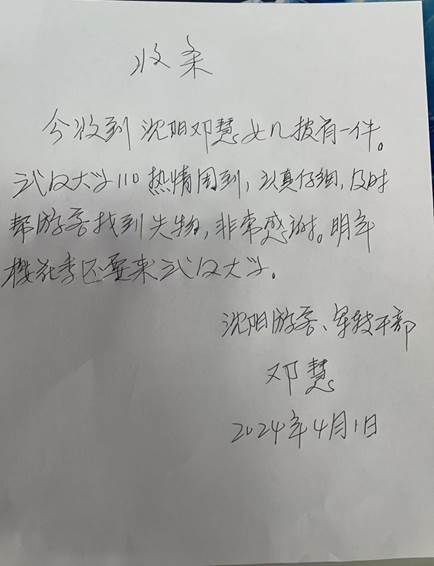 收条
今收到沈阳邓慧女儿披肩一件。
武汉大学110热情周到，认真仔细，及时
帮游客找到失物，非常感谢。明年
樱花季还要来武汉大学。
沈阳游客、军转干部
邓慧
2024年4月1日